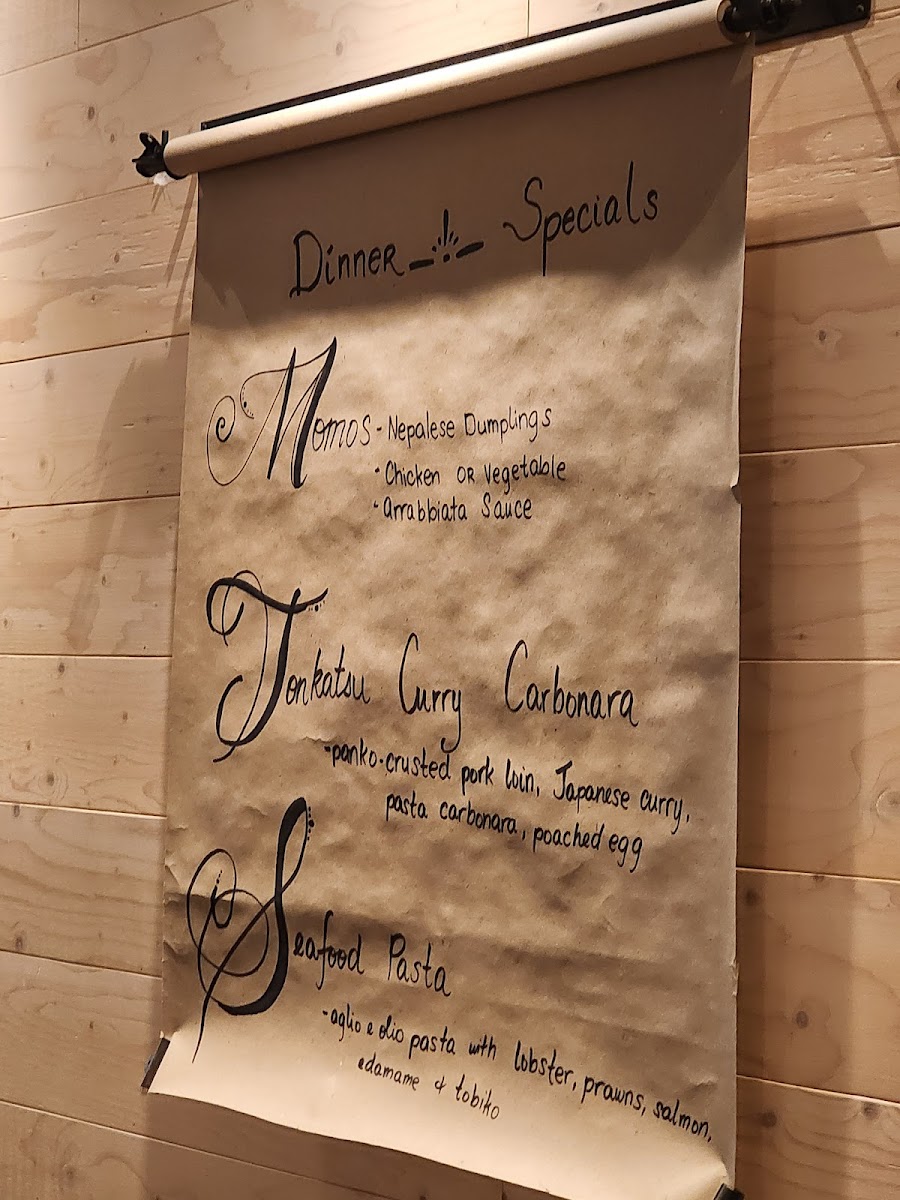 Dinner Specials
Momos - Nepalese Dumplings
• Chicken OR Vegetable
• Arrabbiata Sauce
Tonkatsu Curry Carbonara
- panko-crusted pork loin, Japanese curry,
pasta carbonara, poached egg
Seafood Pasta
- aglio e olio pasta with lobster, prawns, salmon,
edamame & tobiko